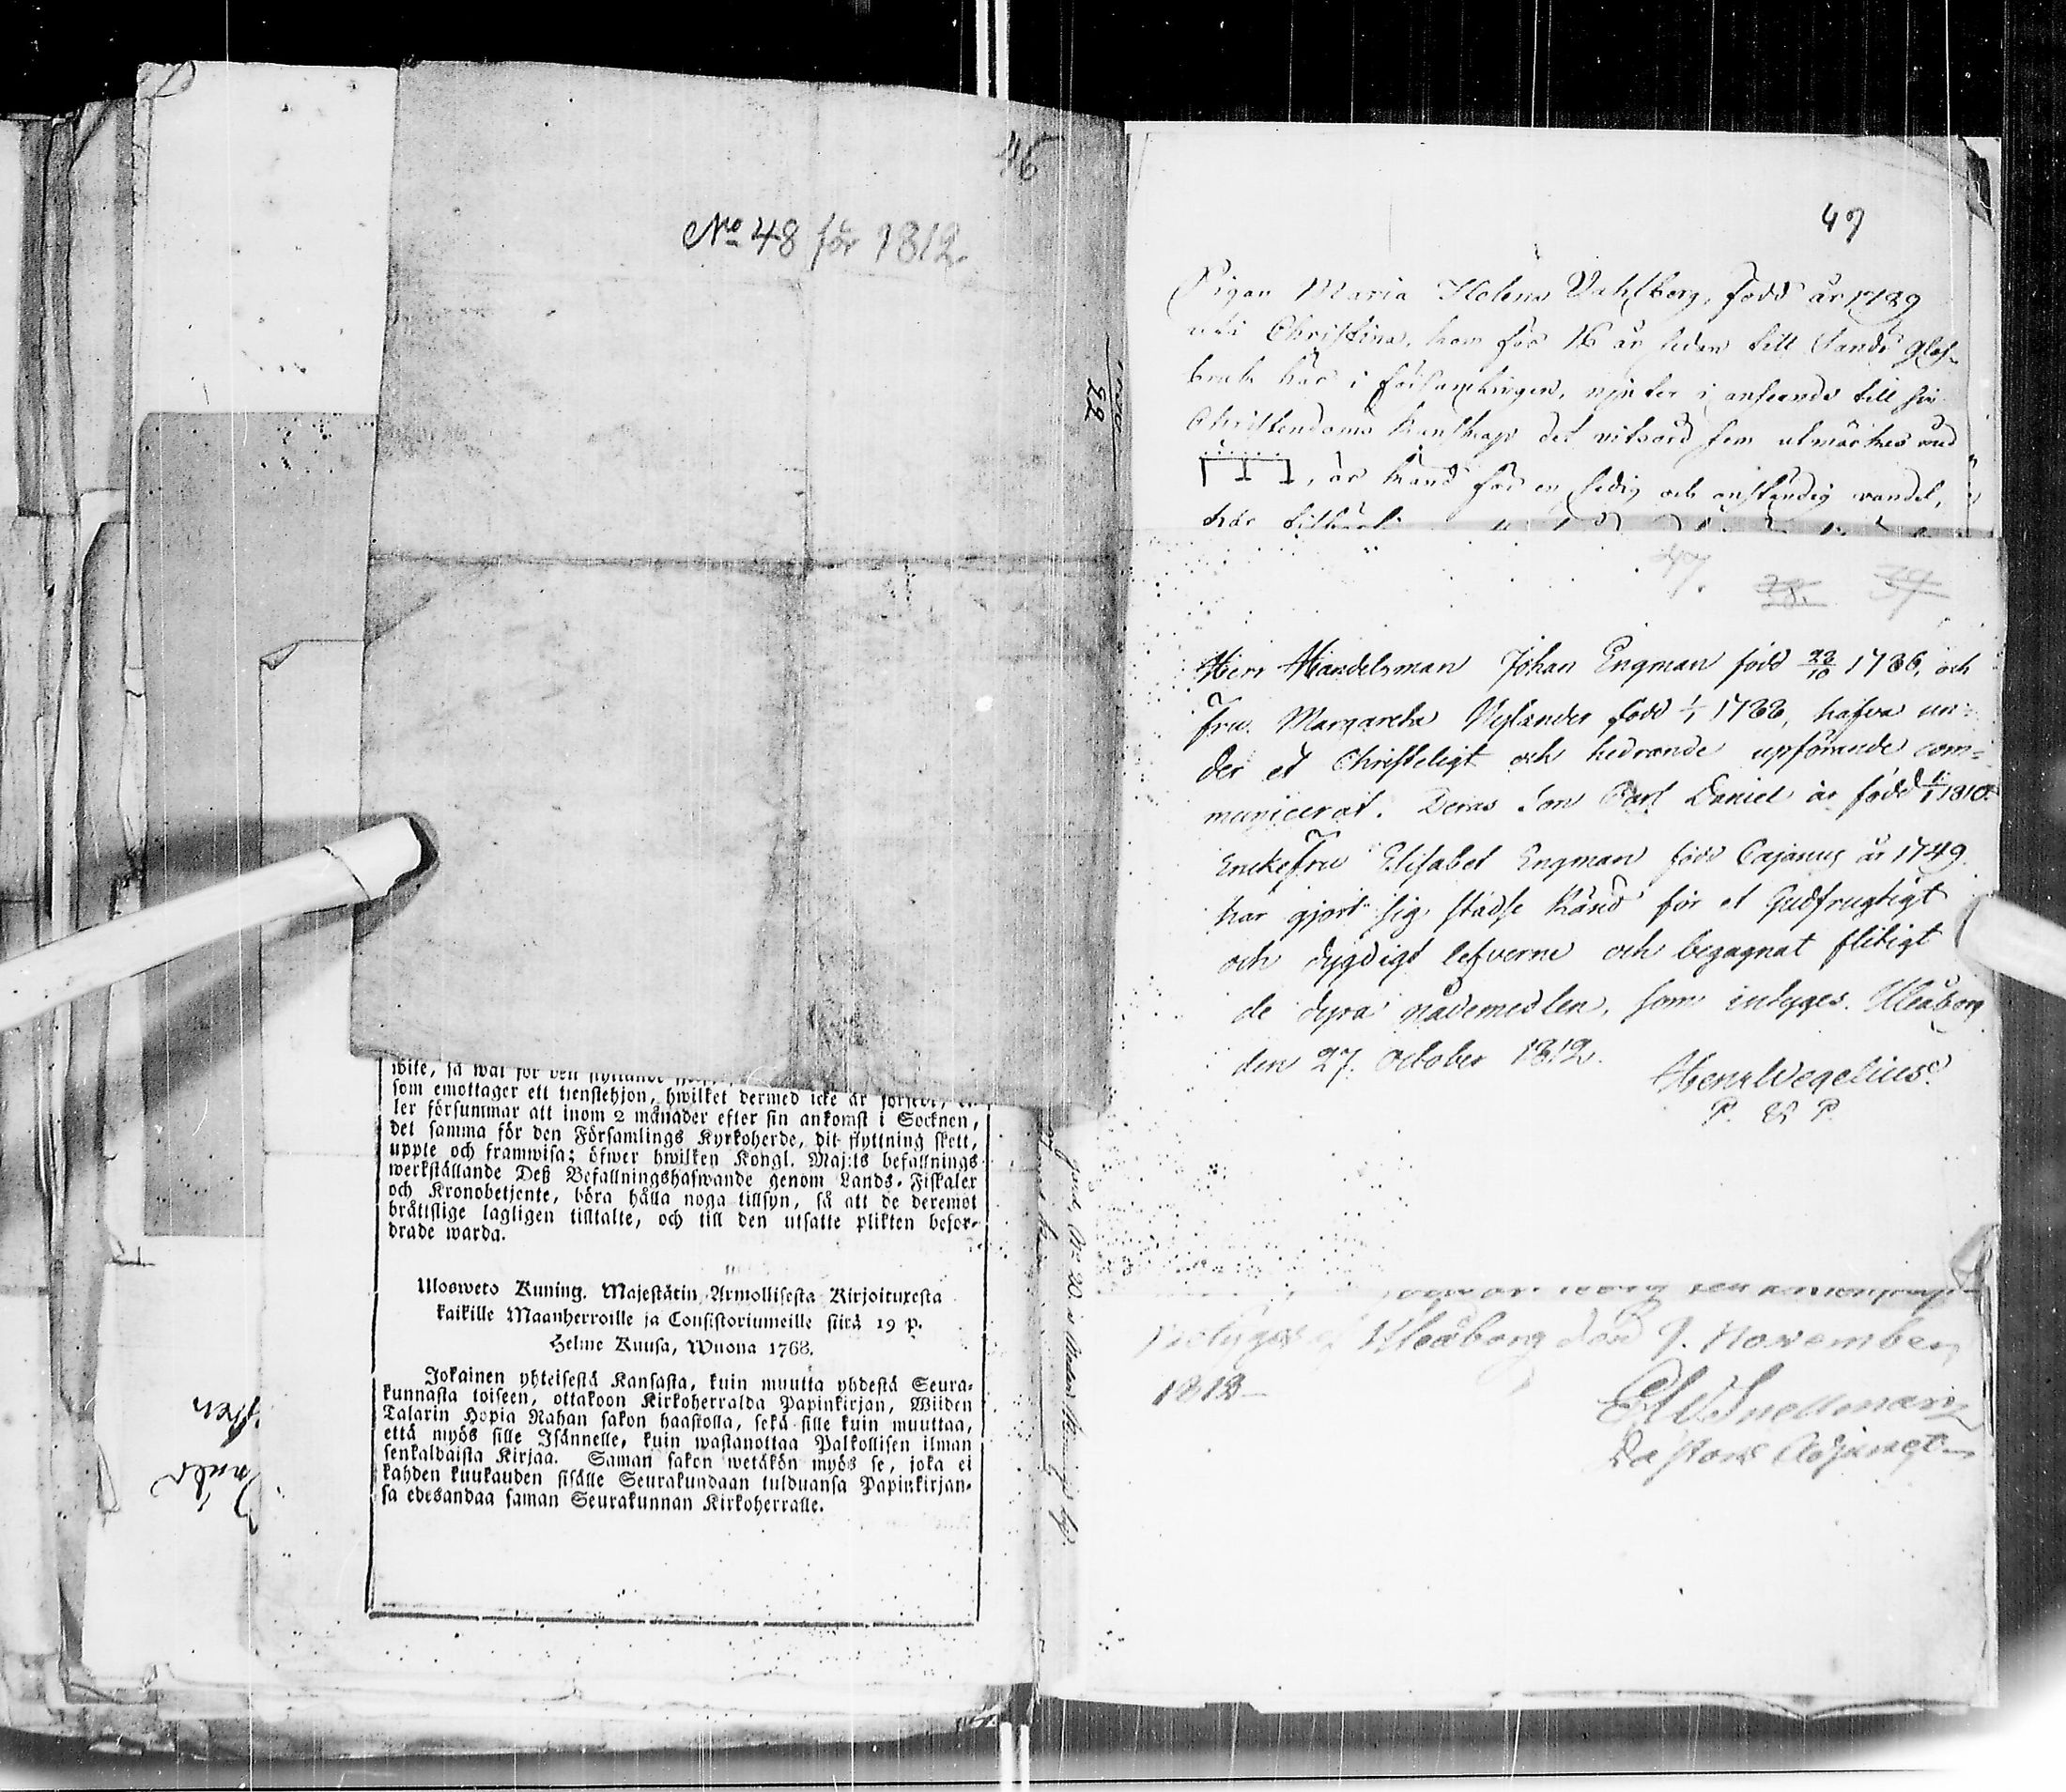 46
No 48 för 1812.
som emottager ett tienstehjon, hwilket dermed icke är
ler försummar att inom 2 månader efter sin ankomst i Socknen,
det samma för den Församlings Kyrkoherde, dit flyttning skett,
upple och framwisa; öfwer hwilken Kongl. Maj:ts befallnings
werkställande Deß Befallningshafwande genom Lands-Fiskaler
och Kronobetjente, böra hålla noga tillsyn, så att de deremot
bråttslige lagligen tilltalte, och till den utsatte plikten befor-
drade warda.
Ulosweto Kuning. Majestätin Armollisesta Kirjoituxesta
kaikille Maanherroille ja Consistoriumeille siitä 19 p.
Helme Kuusa, Wuona 1768.
Jokainen yhteisestä Kansasta, kuin muutta yhdestä Seura-
kunnasta toiseen, ottakoon Kirkoherralda Papinkirjan, Wiiden
Talarin Hopia Rahan sakon haastolla, sekä sille kuin muuttaa,
että myös sille Isännelle, kuin wastanottaa Palkollisen ilman
senkaldaista Kirjaa. Saman sakon wetäkön myös se, joka ei
kahden kuukauden sisälle Seurakundaan tulduansa Papinkirjan-
sa edesandaa saman Seurakunnan Kirkoherralle.
22
47
Pigan Maria Helena Dahlberg, född år 1789
uti Christina, kom för 16 år sedan till Sands glas-
bruk här i församlingen, njuter i anseende till sin
Christendoms kunskap det vitsord som utmärkes med
, är känd för en sedig och anständig vandel,
har
47.
38. 39
Herr Handelsman Johan Engman född 23/10 1786, och
Fru Margareta Nylander född 1/1 1788, hafva un-
der et Christeligt och hedrande upförande com-
municerat. Deras Son Carl Daniel är född 1810.
Enckefru Elisabet Engman född Cajanus år 1749.
har gjort sig städse känd för et Gudfrugtigt
och dygdigt lefverne och begagnat flitigt
de dyra nådemedlen, som intyges. Uleåborg
den 27. October 1812.
Henr Wegelius.
P. & P.
Intygas Uleåborg den 9. November
1812
Snellman
Pastors Adjunct